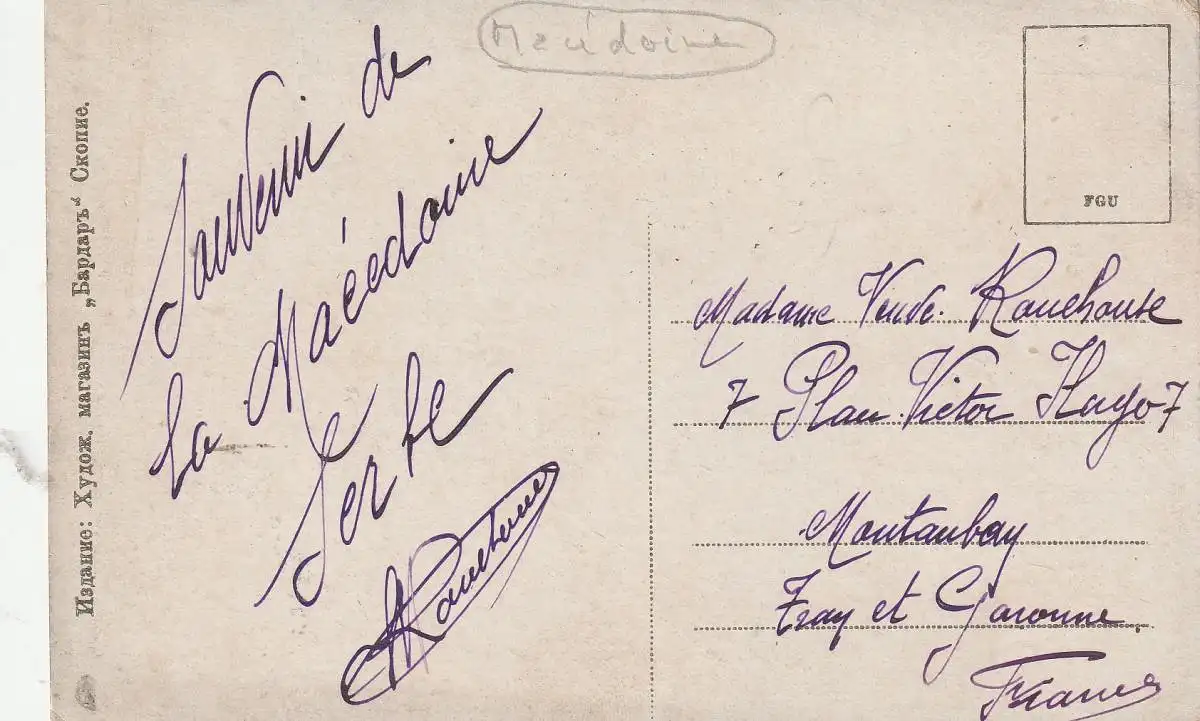 Macédoine
Souvenir de
la Macédoine
Serbe
FGU
Madame Veuve. Rouchouse
7 Place Victor Hugo 7
Montauban
Tray et Garonne
France
Издание: Худож. магазинъ „Вардаръ“ Скопие.